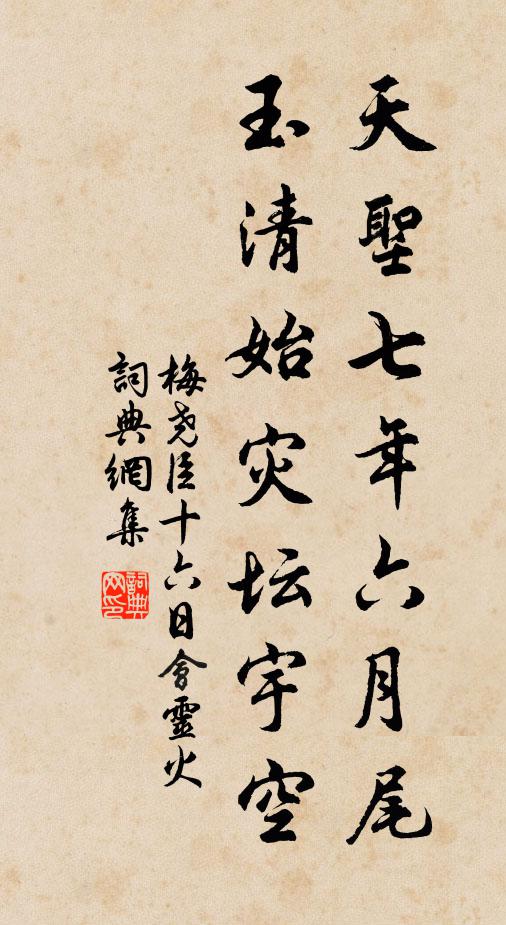 天聖七年六月尾
玉清始灾坛宇空
梅尧臣十六日會靈火
詞典網集
詞典网印